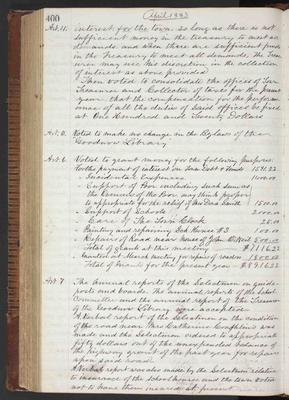 400
April 1883
Art. 11. interest for the town so long as there is not
sufficient money in the treasury to meet as
demands and when there are sufficient funds
in the Treasury to meet all demands, the Treas
urer may use his discretion in the collection
of interest as above provided
Then voted to consolidate the offices of Town
Treasurer and Collector of taxes for the present
year that the compensation for the perform
ance of all the duties of said offices be fixed
at One Hundred and Twenty Dollars
Art. 5. Voted to make no change in the Bylaws of the
Goodnow Library
Art. 6. Voted to grant money for the following purposes.
To the payment of interest on Town Debt & Bonds 1541.23
" Incidental Expenses 1400.00
" Support of Poor including such sum as
the Overseers of the Poor may think proper
to appropriate for the relief of 1500.00
" Support of Schools 2000.00
" Care of The Town Clock 25.00
" Painting and repairing School House #3 100.00
" Repairs of Road near house of John 500.00
Total of grants at this meeting
Granted at March meeting for repairs of roads 1800.00
Total of Grants for the present year
Art. 7 The annual reports of the Selectmen on guide-
posts and boards. The annual reports of the School
Committee and the annual report of the Treasurer
of the Goodnow Library were accepted.
A Verbal report of the Selectmen on the condition
of the road near Mrs Catherine was
made and the Selectmen ordered to appropriate
fifty dollars out of the unexpended balance of
the highway grant of the past year for repairs
upon said road.
A Verbal report was also made by the Selectmen relative
to insurance of the school houses and the town voted
not to have them insured at present